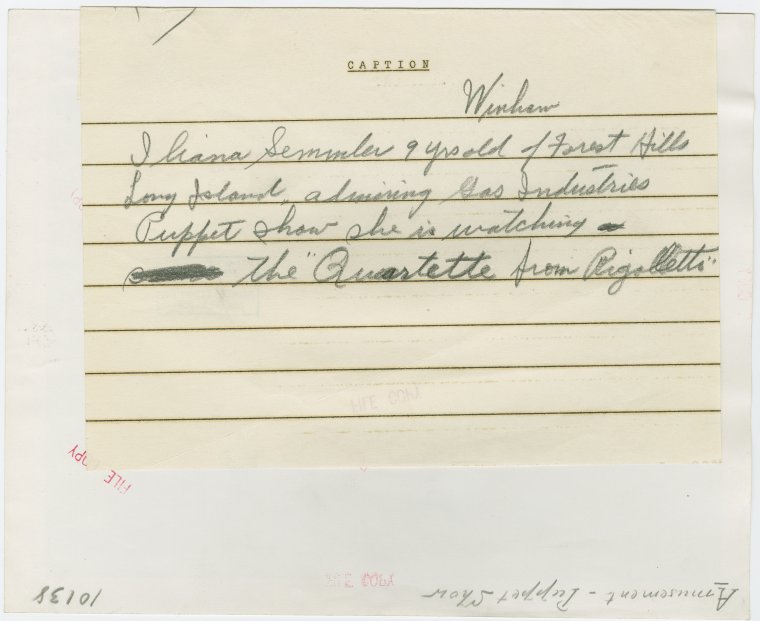 CAPTION
Iliana Semmler 9 yrs old of Forest Hills
Long Island, admiring Gas Industries
Puppet show she is watching
the "Quartette from Rigolletto"
FILE COPY
FILE COPY
FILE COPY
Amusement - Puppet Show
10138